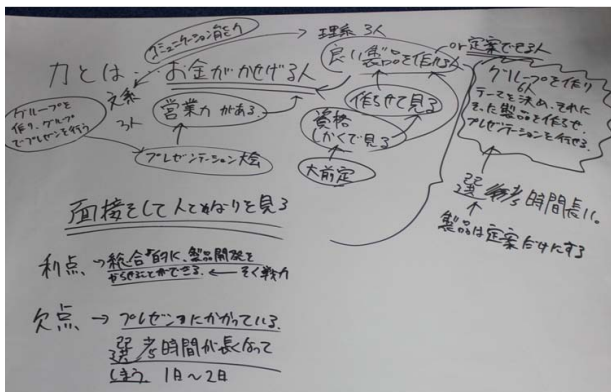 コミュニケーション能力
理系 3人
力とは… お金がかせげる人
良い製品を作れる人
or 定案できる人
文系
3人
営業力がある
作らせて見る
資格
しかくで見る
大前定
グループを
作り、グループ
でプレゼンを行う
プレゼンテーション大会
グループを作り
6人
テーマを決め、それに
そった製品を作らせ、
プレゼンテーションを行せる。
選考時間長い。
製品は定案だけにする
面接をして人となりを見る
利点 → 総合的に、製品開発を
やらせることができる。← そく戦力
欠点 → プレゼン力にかかっている。
選考時間が長くなって
しまう 1日〜2日